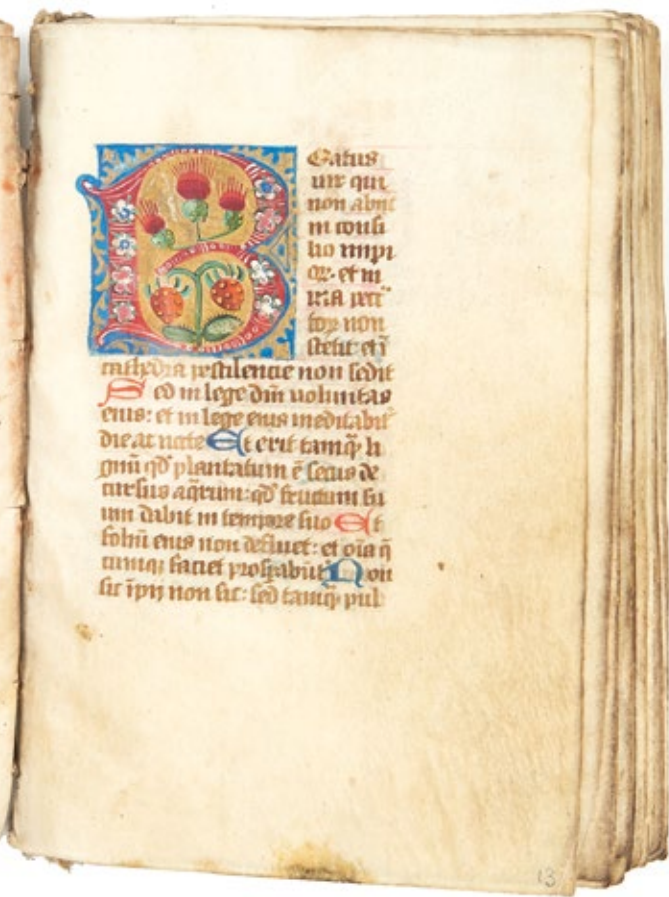 Beatus
uir qui
non abiit
in consi
lio impi
oꝝ· et in
uia pctō
toꝝ non
stetit et ī
cathedra pestilencie non sedit
Sed in lege dn̄i uoluntas
eius: et in lege eius meditabit᷑
die ac nocte Et erit tamq̄ li
gnū qd̓ plantatum ē secus de
cursus aq̄rum: qd̓ fructum su
um dabit in tempore suo Et
foliū eius non defluet: et oīa q̄
cumqꝫ faciet prosꝑabūt᷑ Non
sic īpij non sic: sed tamqꝫ pul
13